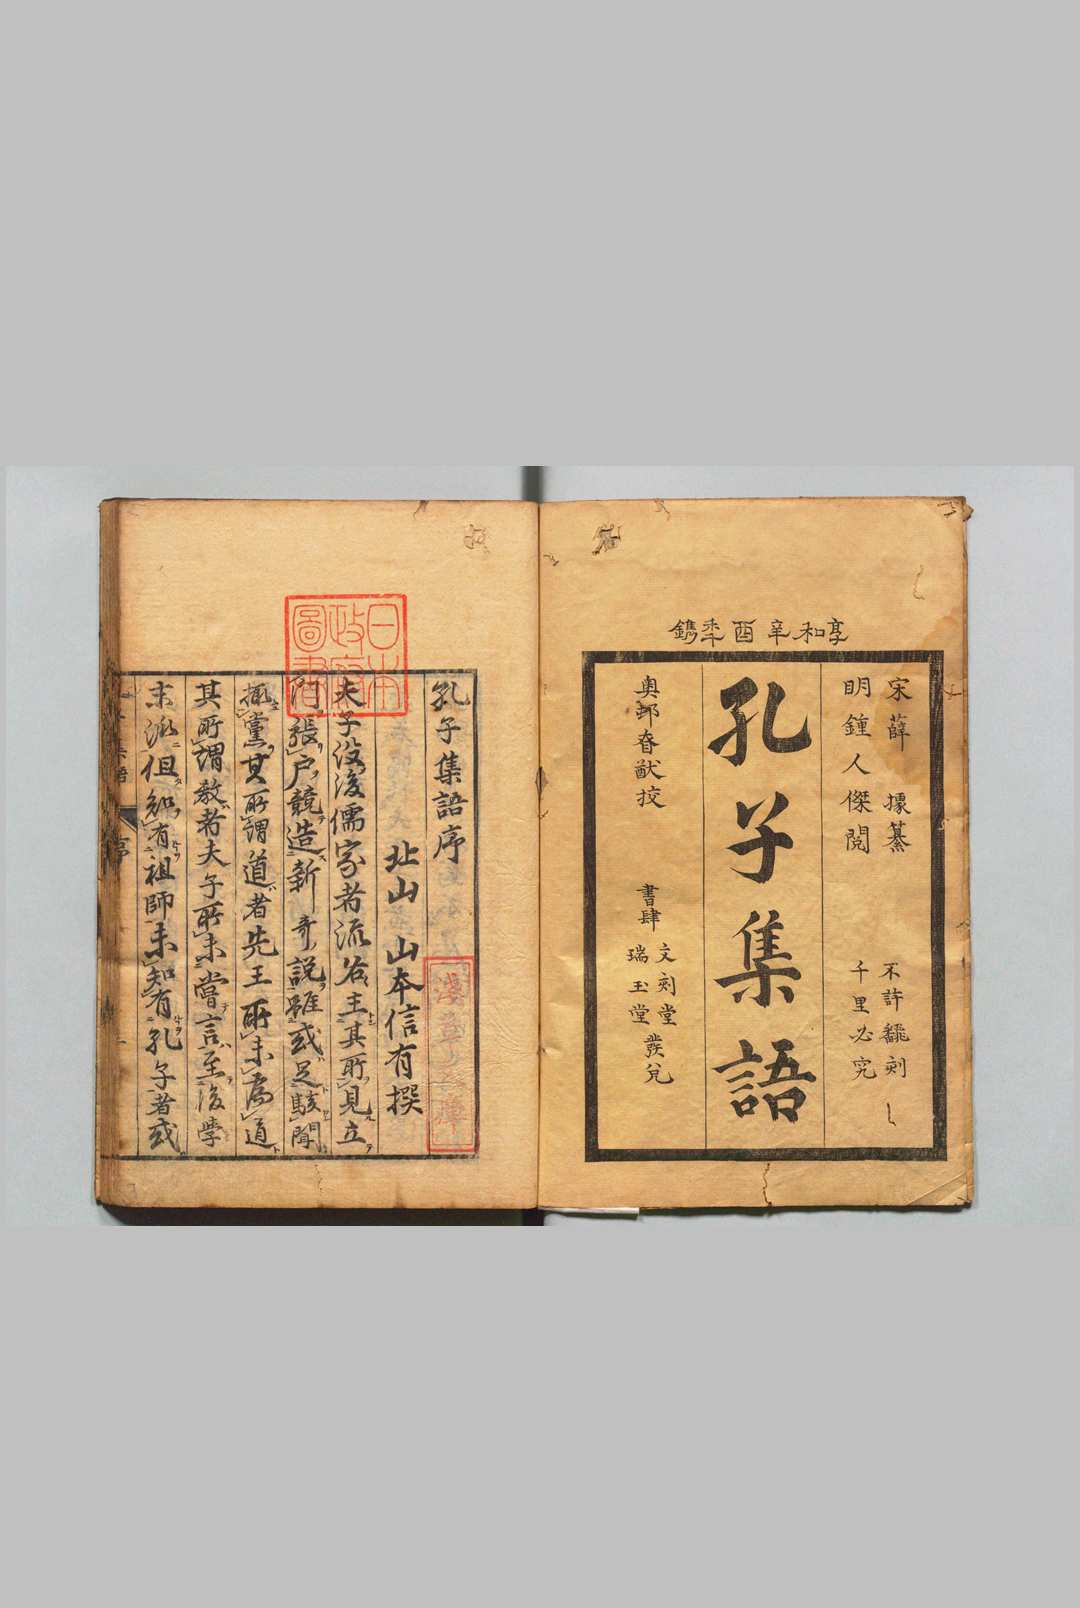 享和辛酉季鐫
宋薛據纂
明鍾人傑閲
不許飜刻
千里必究
孔子集語
奥邨眘猷挍
書肆
文刻堂
瑞玉堂
發兌
孔子集語序
北山 山本信有撰
夫子没後儒家者流各主其所見立
門張戸競造新奇説雖或足駭聞
黨其所謂道者先王所未爲道
其所謂教者夫子所未嘗言至後學
末派但知有祖師未知有孔子者或
日本
政府
圖書